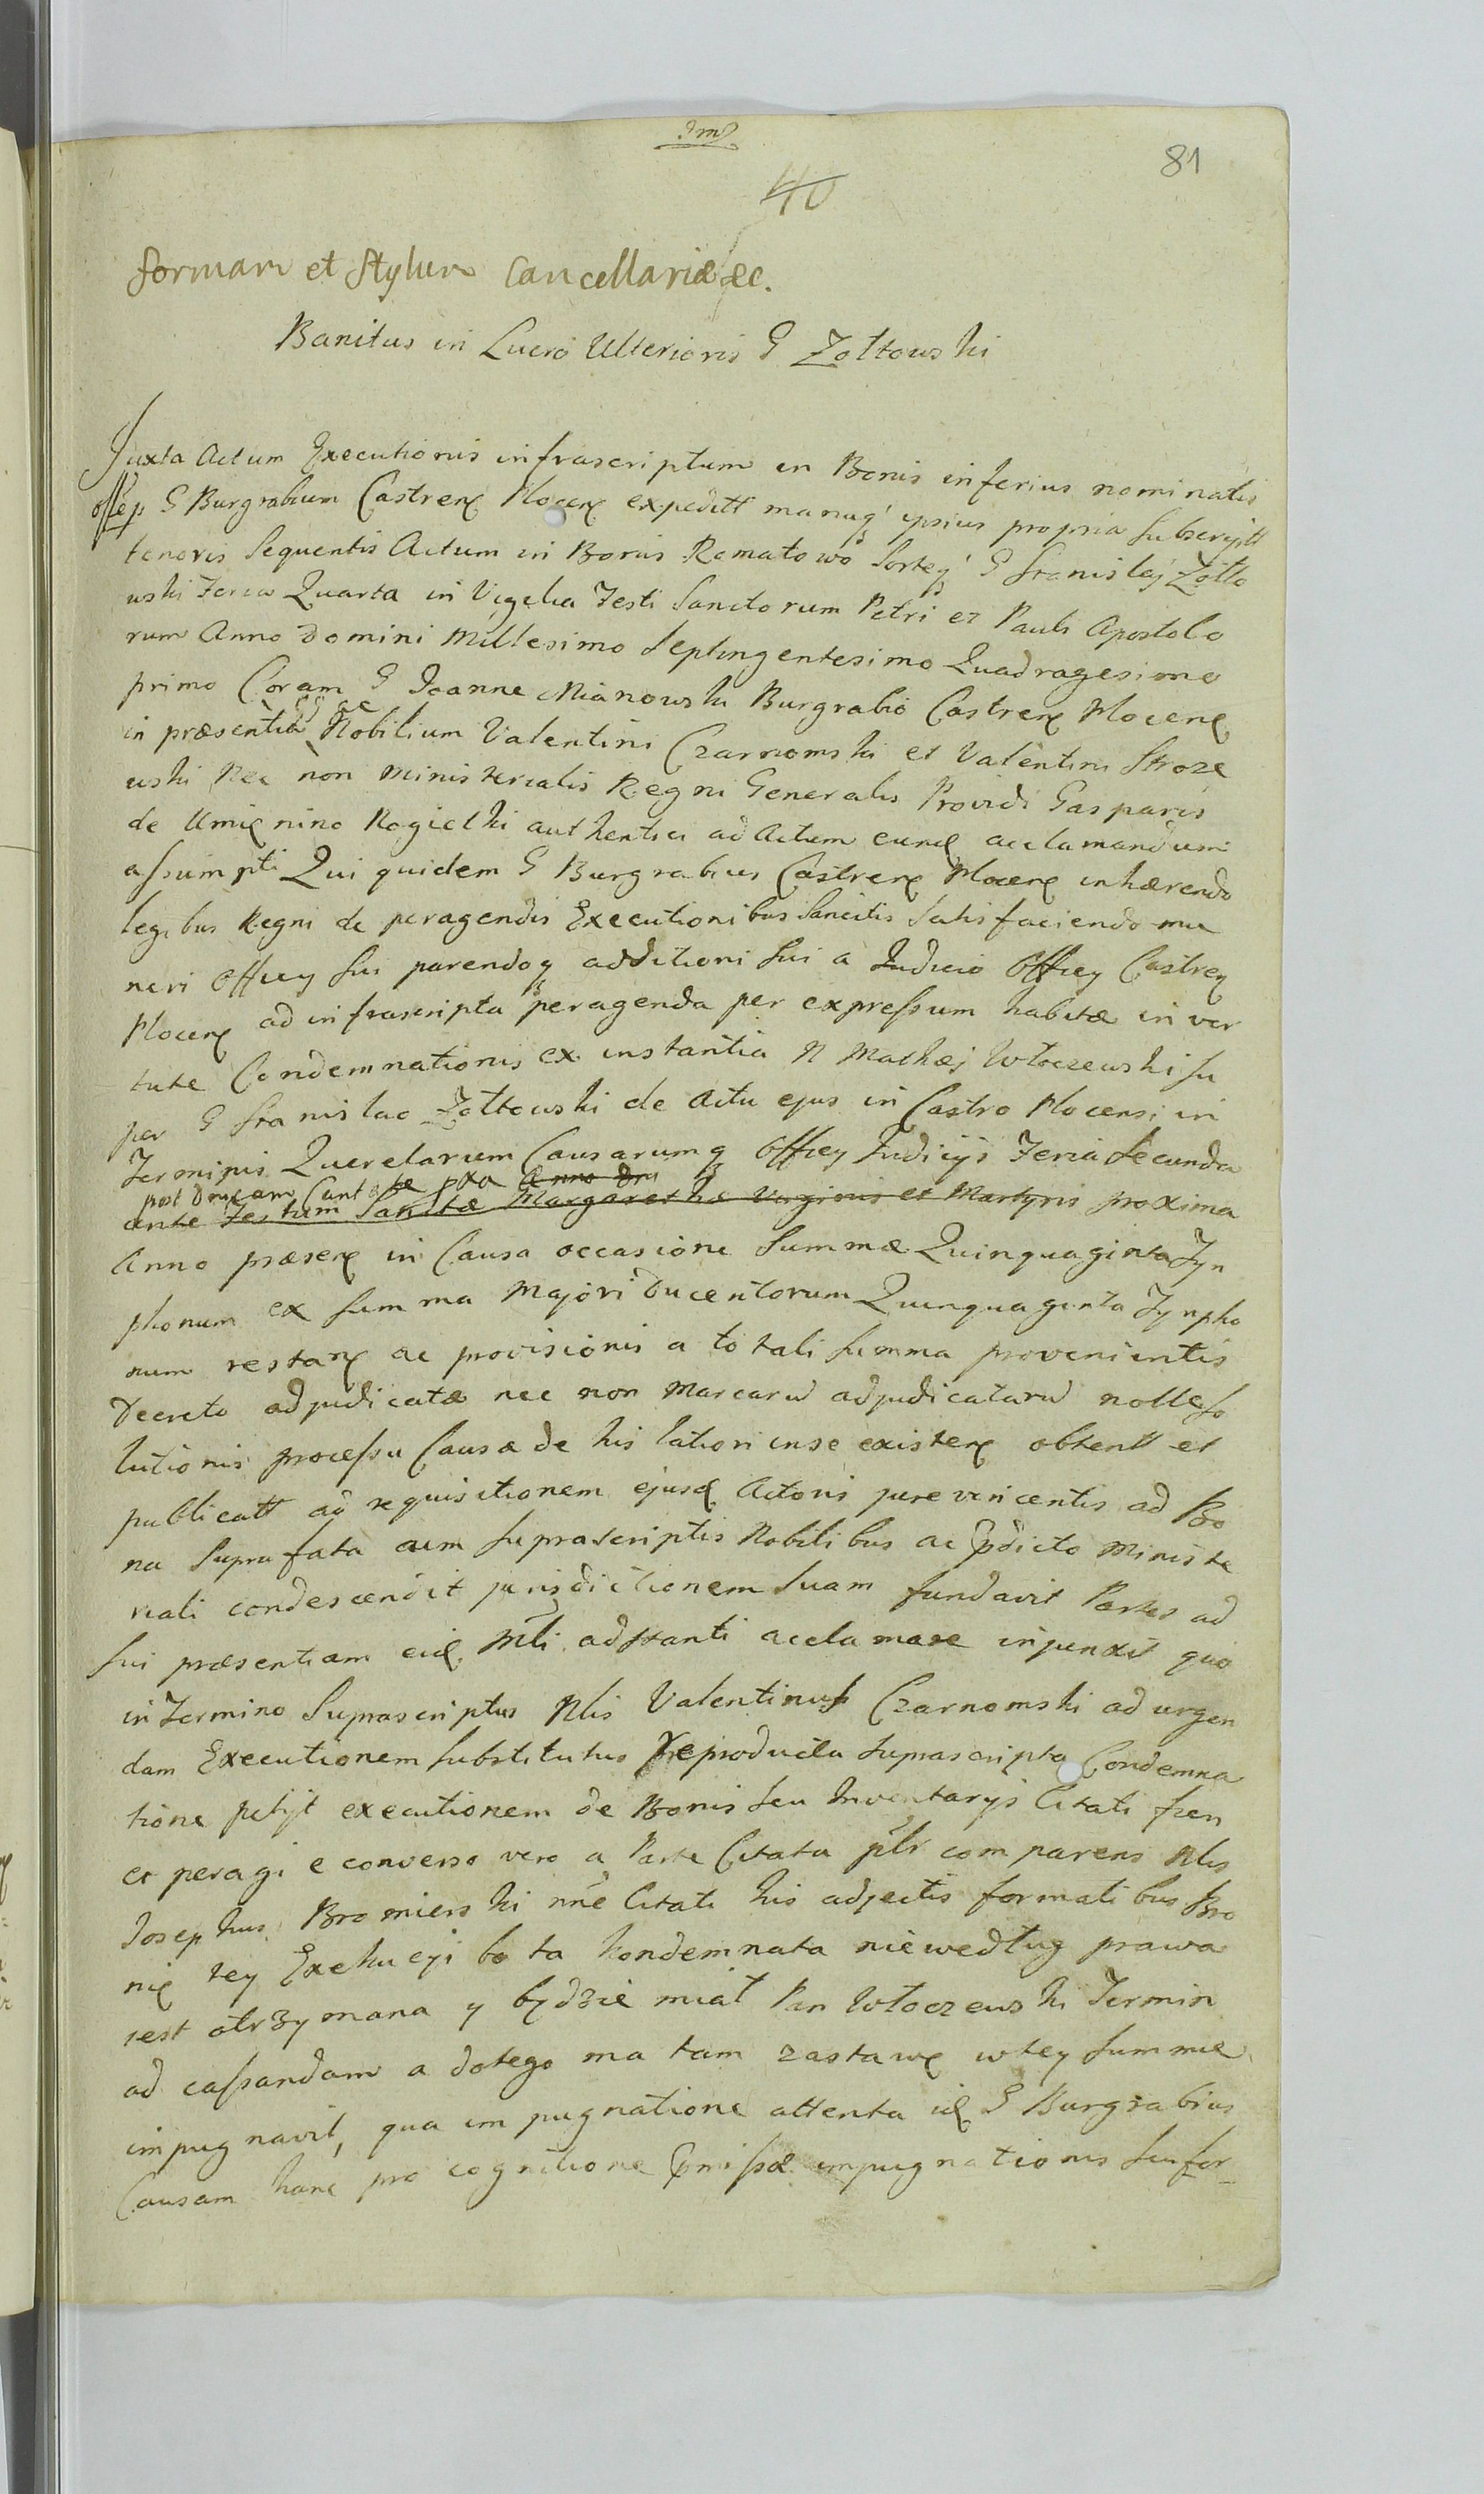 81
40
formam et Stylum Cancellariæ &c.
Banitus in Lucro Ulterioris G Zołtowski
Juxta Actum Executionis infrascriptum in Bonis inferius nominatis
G Burgrabium Castren Plocen expeditt manuq ipsius propria subscriptt
tenoris Sequentis Actum in Bonis Rematowo Sorteq G Stanislaj Zołto
wski Feria Quarta in Vigilia Festi Sanctorum Petri et Pauli Apostolo
rum Anno Domini Millesimo Septingentesimo Quadragesimo
primo Coram G Joanne Mianowski Burgrabio Castren Plocen
in præsentia GG ac Nobilium Valentini Czarnomski et Valentini Stroze
wski Nec non Ministerialis Regni Generalis Providi Gasparis
de Umienino Rogielki authentici ad Actum eund acclamandum
assumpti Qui quidem G Burgrabius Castren Plocen inhærendo
legibus Regni de peragendis Executionibus Sancitis Satisfaciendo mu
neri Officy sui parendoq additioni sui a Judicio Officy Castren
Plocen ad infrascripta peragenda per expressum habitæ in vir
tute Condemnationis ex instantia N Mathæj Włoczewski su
per G Stanislao Zołtowski de Actu ejus in Castro Plocensi in
Terminis Querelarum Causarumq Officy Judicijs Feria Secunda
post Dnicam Cantate pxa Anno Dni
ante Festum Sanctæ Margarethæ Virginis et Martyris proxima
Anno præsen in Causa occasione Summæ Quinquaginta Tyn
phonum ex summa Majori Ducentorum Quinquaginta Tynpho
num restan ac provisionis a totali summa provenientis
Decreto adjudicatæ nec non Marcaru adjudicataru nolleso
lutionis processu Causæ de his latiori in se existen obtentt et
publicatt ad requisitionem ejusd Actoris jure vincentis ad Bo
na Suprafata cum suprascriptis Nobilibus ac pdicto Ministe
riali condescendit jurisdictionem suam fundavit Partes ad
sui præsentiam eid Mli adstanti acclamare injunxit quo
in Termino Suprascriptus Nlis Valentinus Czarnomski ad urgen
dam Executionem substitutus Reproducta suprascripta Condemna
tione petijt executionem de Bonis seu Inventarijs Citati fien
et peragi e converso vero a Parte Citata plr comparens Nlis
Josephus Bromierski nne Citati his adjectis formalibus Bro
nię tey Exekucyi bo ta kondemnata niewedług prawa
iest otrzymana y będzie miał Pan Włoczewski Termin
ad cassandam a dotego ma tam zastawę wtey summie
impugnavit, qua impugnatione attenta id G Burgrabius
Causam hanc pro cognitione pmissæ impugnationis suo for